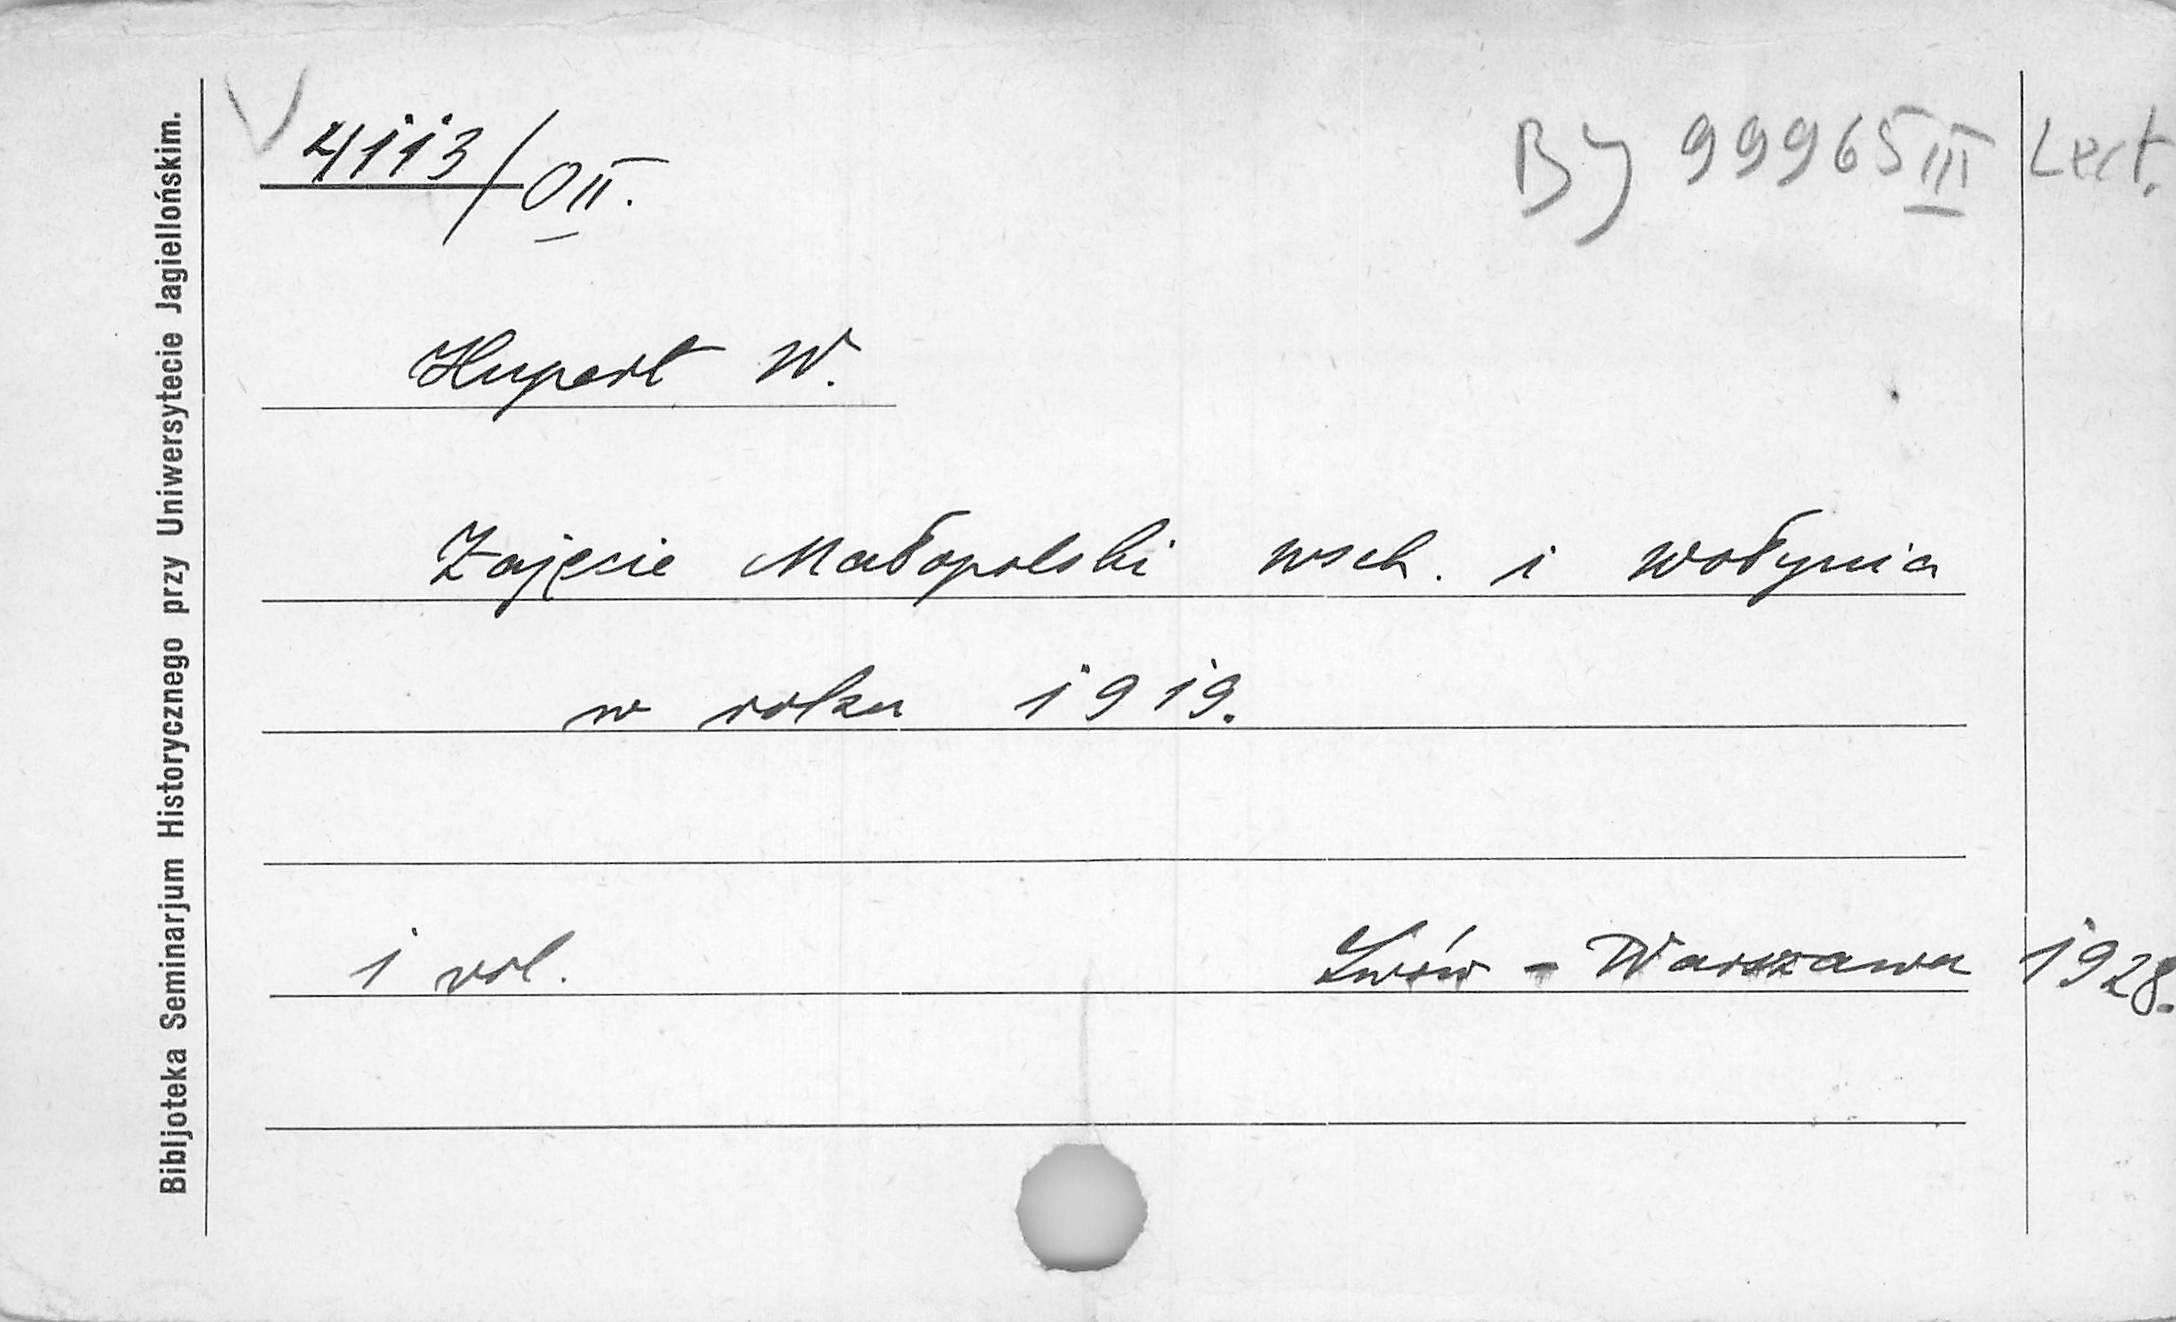 Bibljoteka Seminarjum Historycznego przy Uniwersytecie Jagiellońskim.
V 4113/OII.
BJ 99965 III Lect.
Hupert W.
Zajęcie Małopolski wsch. i Wołynia
w roku 1919.
1 vol. Lwów - Warszawa 1928.